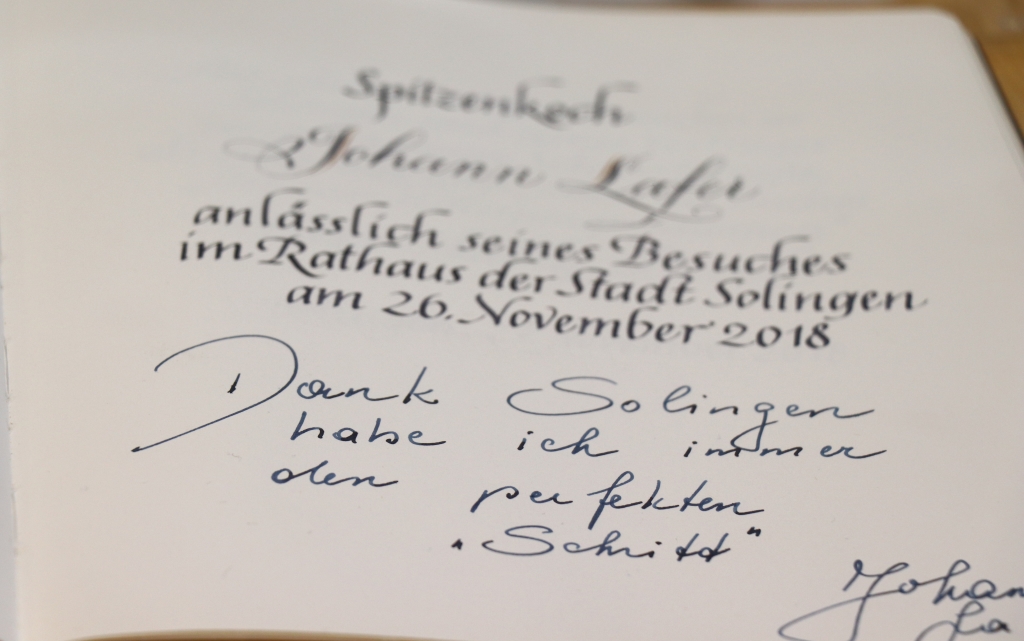 Spitzenkoch
Johann Lafer
anlässlich seines Besuches
im Rathaus der Stadt Solingen
am 26. November 2018
Dank Solingen
habe ich immer
den perfekten
"Schnitt"
Johan
La